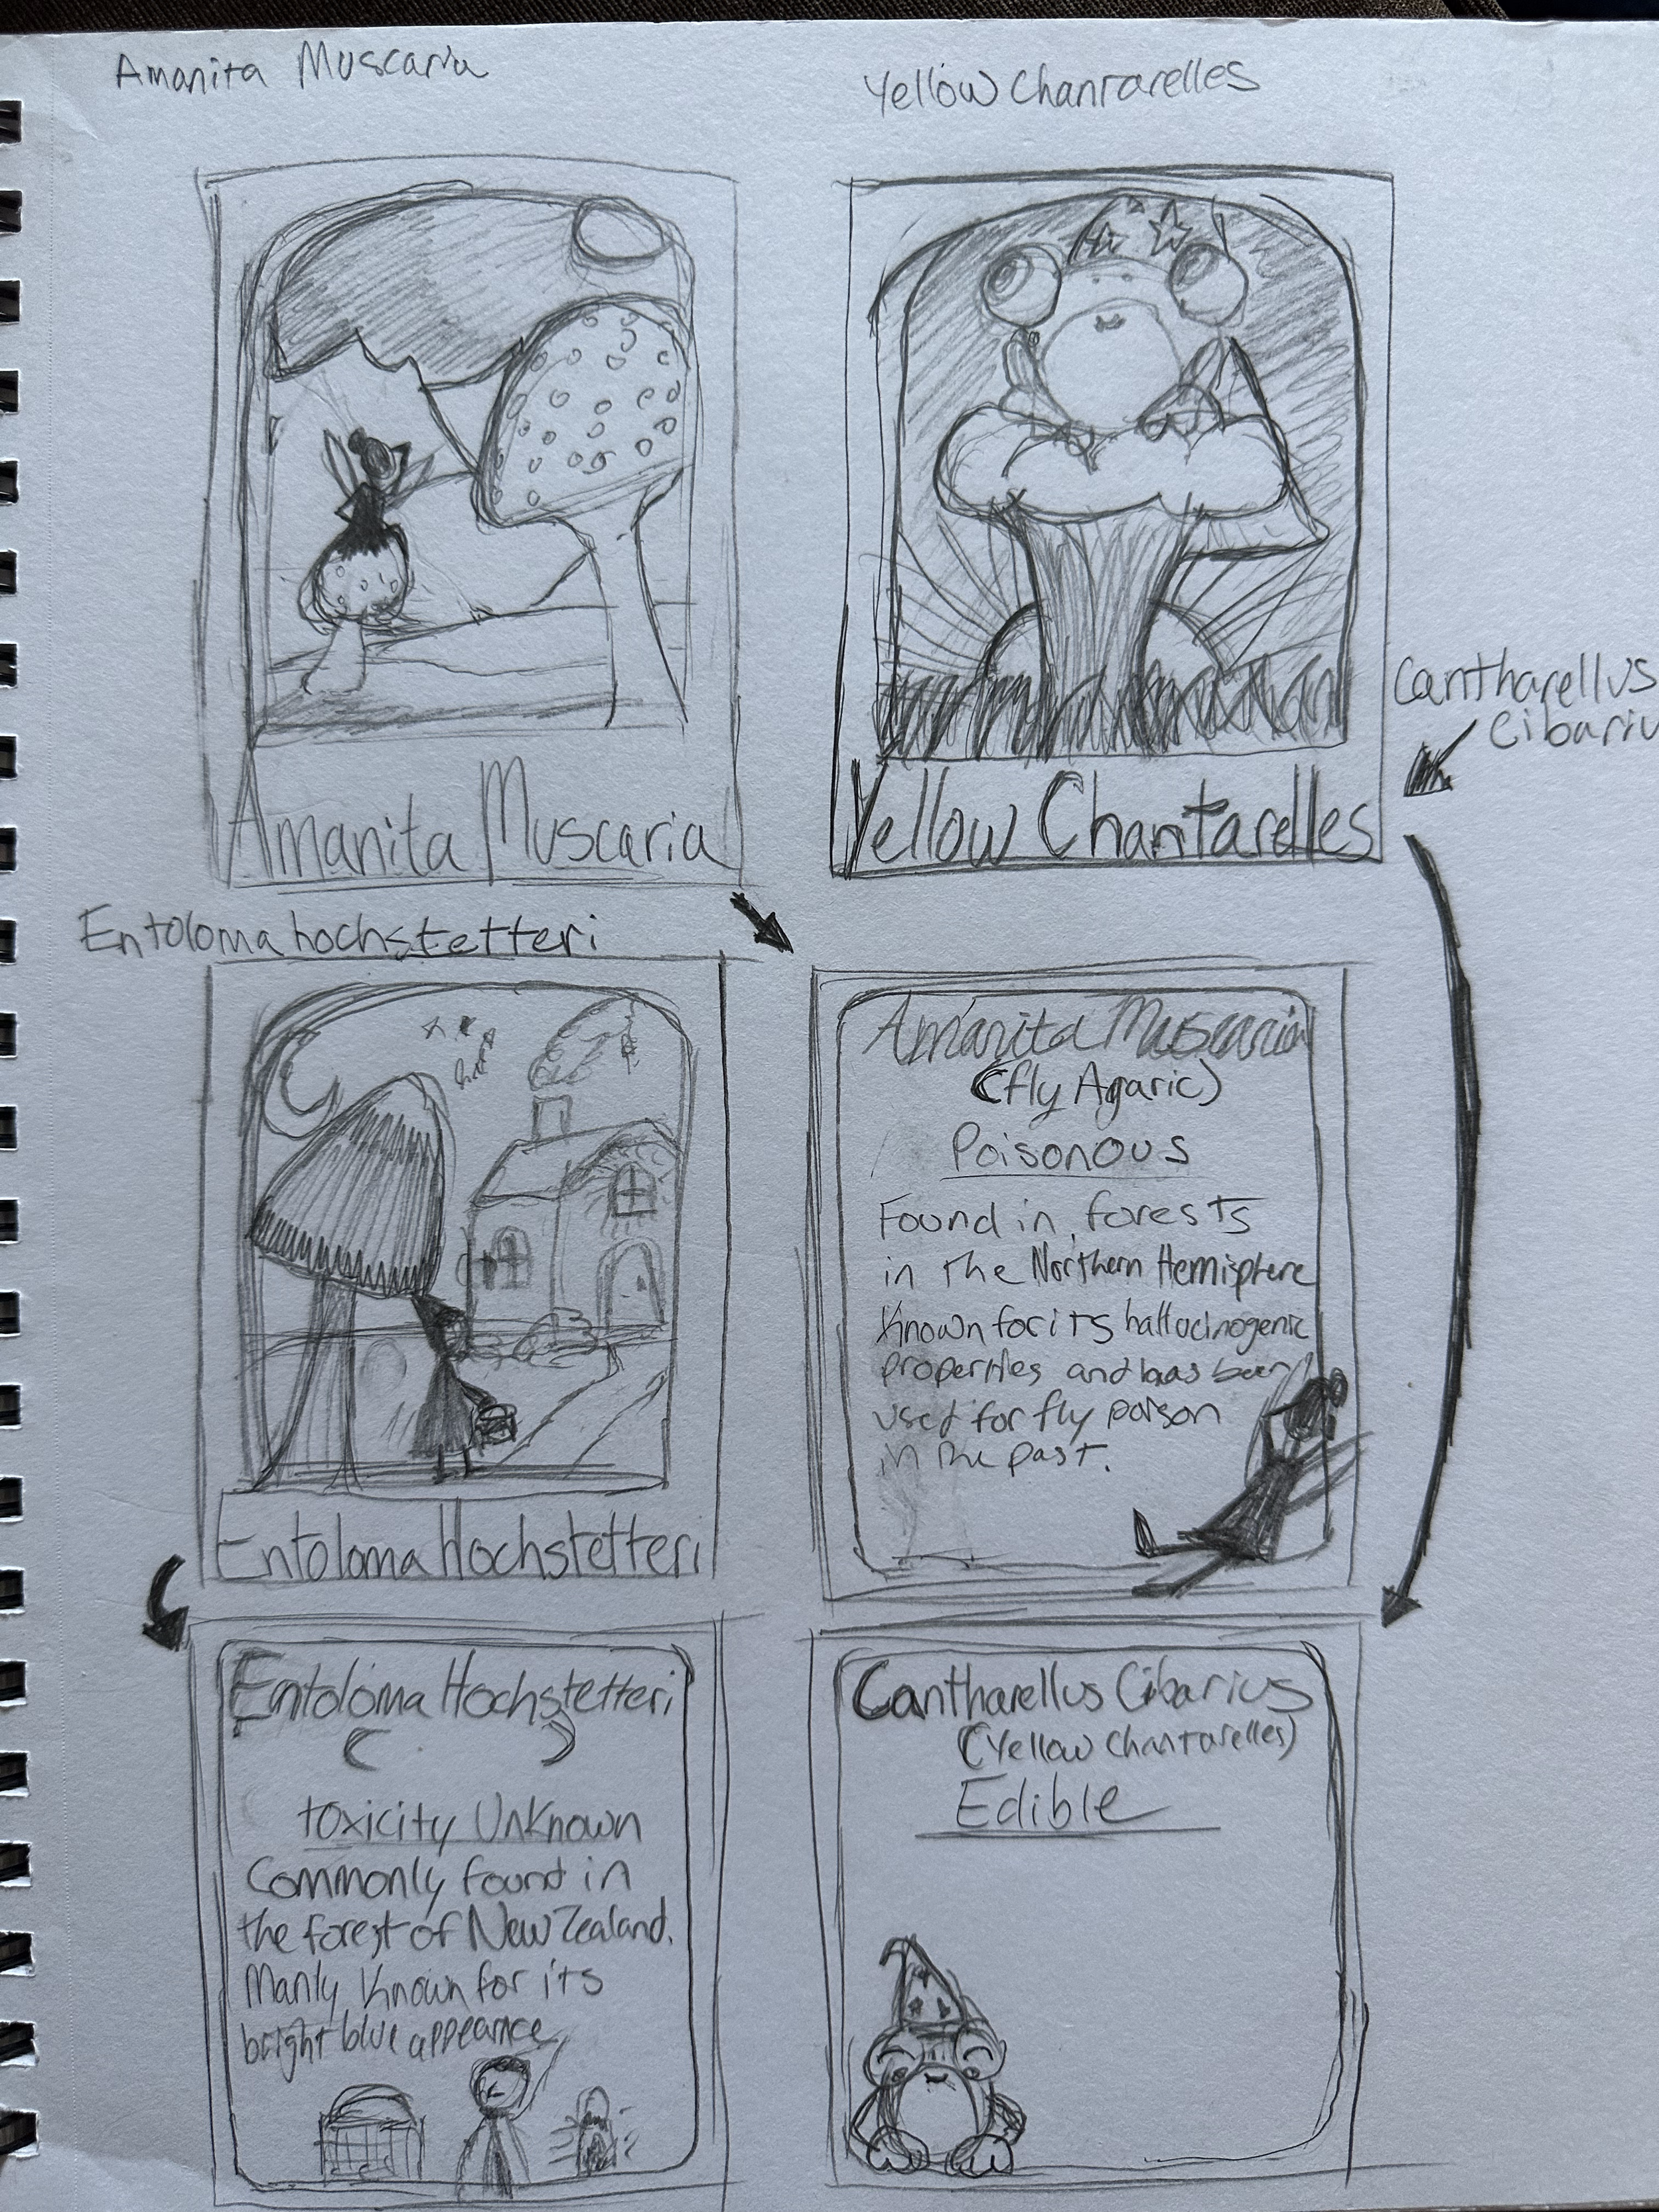 Amanita Muscaria
Yellow Chantarelles
Amanita Muscaria
Yellow Chantarelles
Cantharellus
Cibariu
Entoloma hochstetteri
Entoloma Hochstetteri
Amanita Muscaria
(fly Agaric)
Poisonous
Found in forests
in the Northern Hemisphere
Known for its hallucinogenic
properties and has been
used for fly poison
in the past.
Entoloma Hochstetteri
( )
toxicity Unknown
Commonly found in
the forest of New Zealand.
Manly Known for its
bright blue appearnce
Cantharellus Cibarius
(Yellow Chantarelles)
Edible